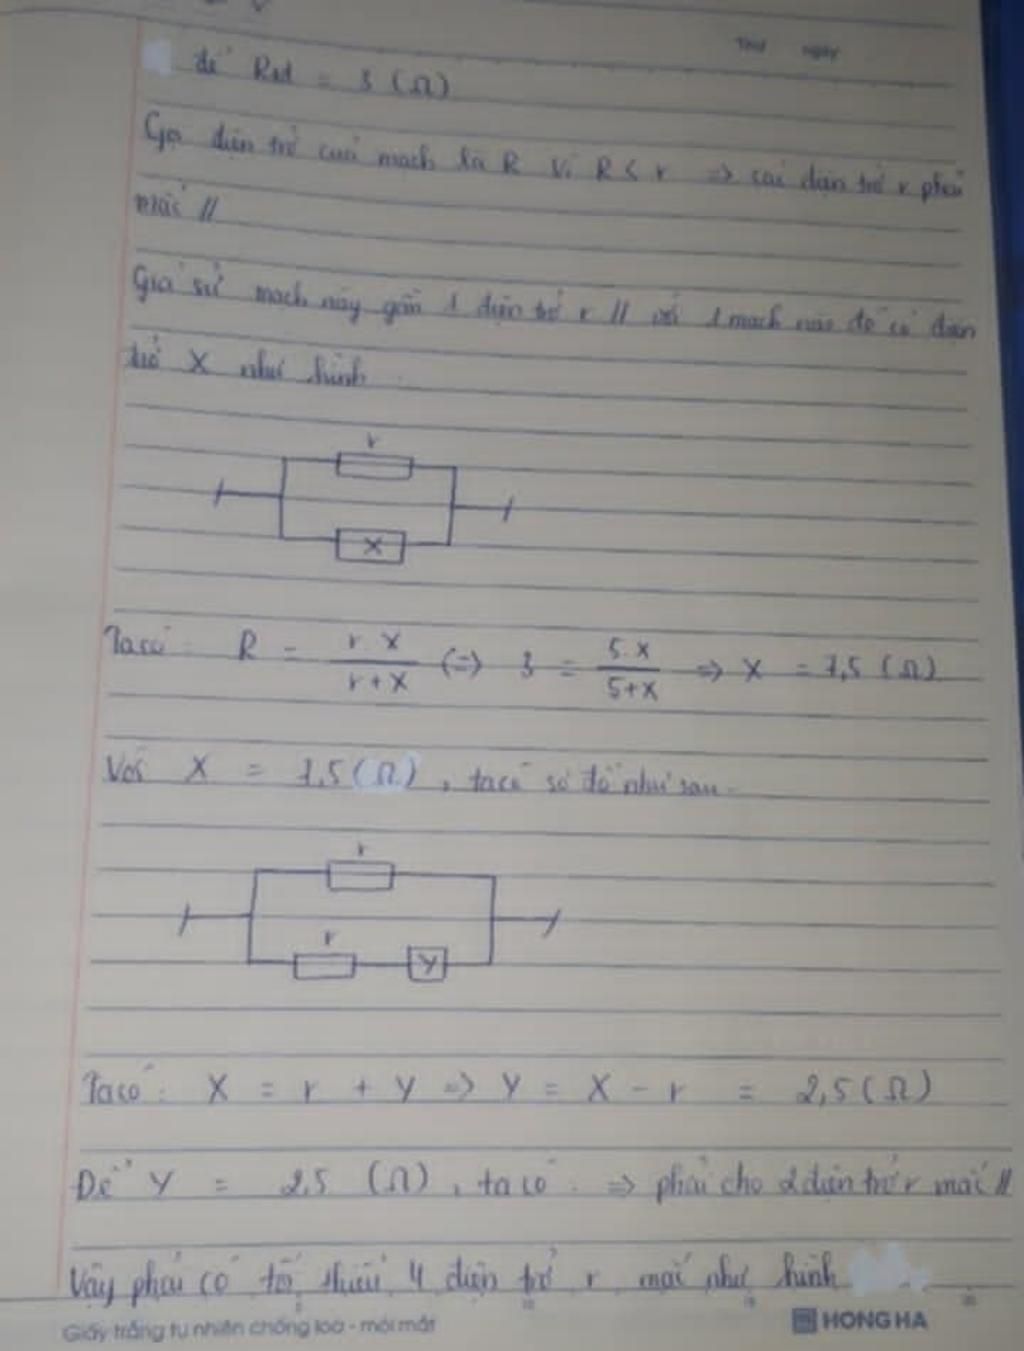 Thứ ngày
để Rtd = 3 (Ω)
Gọi điện trở cuả mạch là R vì R < r => các điện trở r phải
mắc //
Giả sử mạch này gồm 1 điện trở r // với 1 mạch nào đó có điện
trở X như hình
r
X
Ta có: R = r.X / r+X (=) 3 = 5.X / 5+X => X = 7,5 (Ω)
Với X = 7,5 (Ω), ta có sơ đồ như sau
r
r Y
Ta có: X = r + Y => Y = X - r = 2,5 (Ω)
Để Y = 2,5 (Ω), ta có => phải cho 2 điện trở r mắc //
Vậy phải có tối thiểu 4 điện trở r mắc như hình
Giấy trắng tự nhiên chống loá - mỏi mắt HONG HA